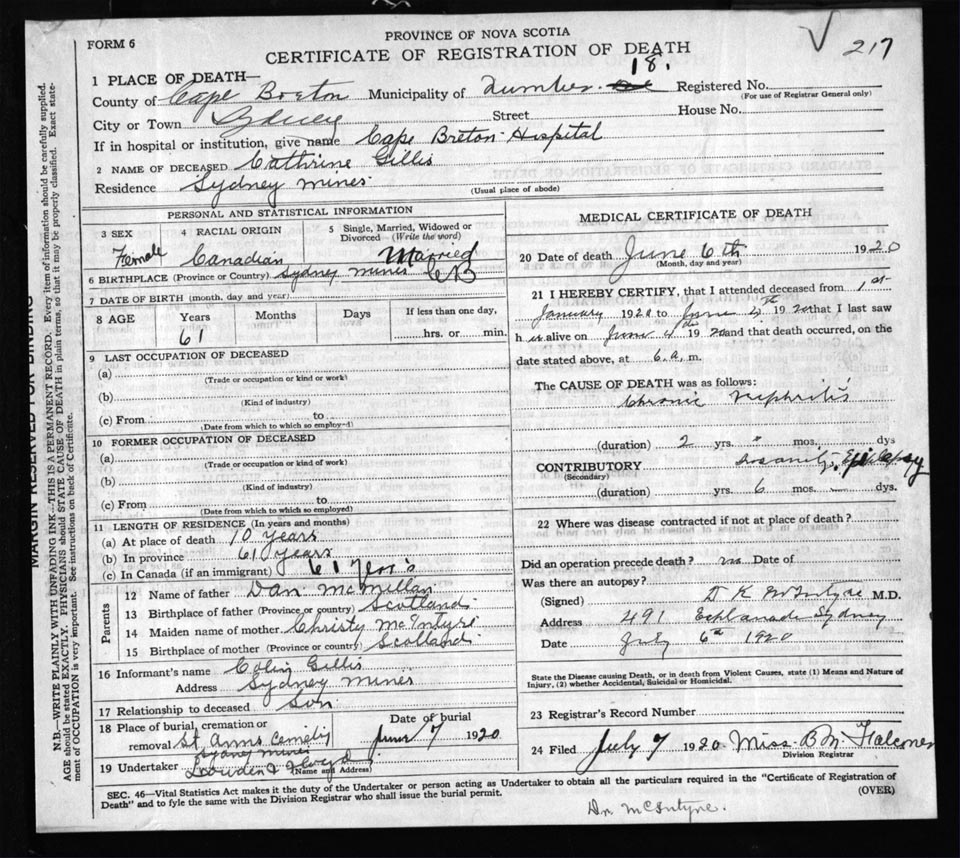 217
PROVINCE OF NOVA SCOTIA
FORM 6
CERTIFICATE OF REGISTRATION OF DEATH
1 PLACE OF DEATH—
County of Cape Breton Municipality of Number 18. Registered No.
(For use of Registrar General only)
City or Town Sydney Street House No.
If in hospital or institution, give name Cape Breton Hospital
2 NAME OF DECEASED Cathrine Gillis
Residence Sydney mines (Usual place of abode)
PERSONAL AND STATISTICAL INFORMATION
3 SEX 4 RACIAL ORIGIN 5 Single, Married, Widowed or Divorced (Write the word)
Female Canadian Married
6 BIRTHPLACE (Province or Country) Sydney mines CB
7 DATE OF BIRTH (month, day and year)
8 AGE Years Months Days If less than one day,
61 hrs. or min.
9 LAST OCCUPATION OF DECEASED
(a)
(Trade or occupation or kind or work)
(b)
(Kind of industry)
(c) From to
(Date from which to which so employ-d)
10 FORMER OCCUPATION OF DECEASED
(a)
(Trade or occupation or kind of work)
(b)
(Kind of industry)
(c) From to
(Date from which to which so employed)
11 LENGTH OF RESIDENCE (In years and months)
(a) At place of death 10 years
(b) In province 61 years
(c) In Canada (if an immigrant) 61 Years
Parents
12 Name of father Dan McMillan
13 Birthplace of father (Province or country) Scotland
14 Maiden name of mother Christy McIntyre
15 Birthplace of mother (Province or country) Scotland
16 Informant's name Colin Gillis
Address Sydney mines
17 Relationship to deceased Son
18 Place of burial, cremation or Date of burial
removal St Anns Cemetry June 7 1920
Sydney mines
19 Undertaker Lowden & Floyd
(Name and Address)
MEDICAL CERTIFICATE OF DEATH
20 Date of death June 6th 1920
(Month, day and year)
21 I HEREBY CERTIFY, that I attended deceased from 1st
January 1920 to June 4th 1920 that I last saw
h er alive on June 4th 1920 and that death occurred, on the
date stated above, at 6.a. m.
The CAUSE OF DEATH was as follows:
Chronic nephritis
(duration) 2 yrs. " mos. dys
CONTRIBUTORY Insanity, Epilepsy
(Secondary)
(duration) yrs. 6 mos. — dys.
22 Where was disease contracted if not at place of death?
Did an operation precede death? no Date of
Was there an autopsy?
(Signed) D K McIntyre M.D.
Address 491 Esplanade Sydney
Date July 6th 1920
State the Disease causing Death, or in death from Violent Causes, state (1) Means and Nature of
Injury, (2) whether Accidental, Suicidal or Homicidal.
23 Registrar's Record Number
24 Filed July 7 1920 Miss B M Falconer
Division Registrar
SEC. 46—Vital Statistics Act makes it the duty of the Undertaker or person acting as Undertaker to obtain all the particulars required in the "Certificate of Registration of
Death" and to fyle the same with the Division Registrar who shall issue the burial permit. (OVER)
Dr. McIntyre.
MARGIN RESERVED FOR BINDING
N.B.—WRITE PLAINLY WITH UNFADING INK—THIS IS A PERMANENT RECORD. Every item of information should be carefully supplied.
AGE should be stated EXACTLY. PHYSICIANS should STATE CAUSE OF DEATH in plain terms, so that it may be properly classified. Exact state-
ment of OCCUPATION is very important. See instructions on back of Certificate.